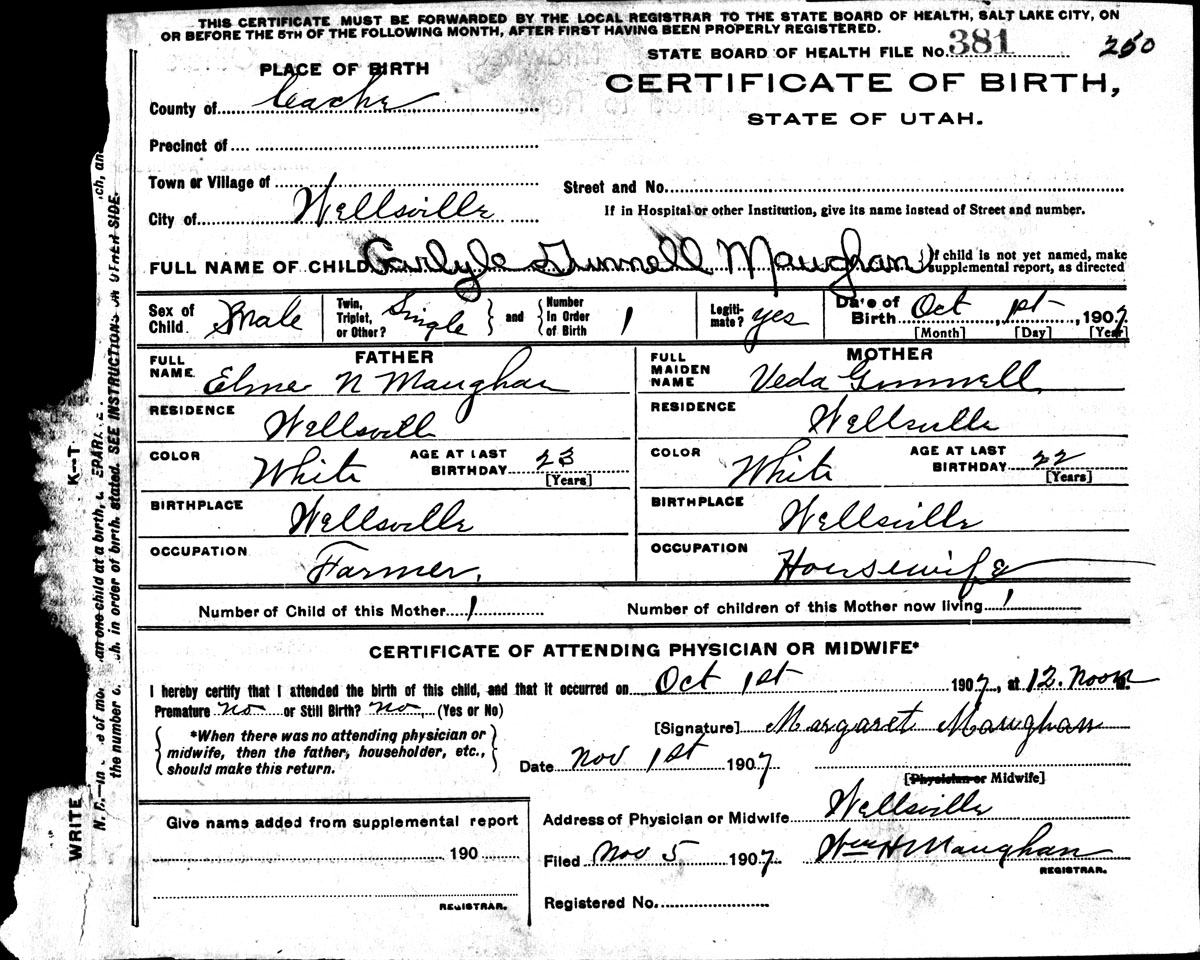 THIS CERTIFICATE MUST BE FORWARDED BY THE LOCAL REGISTRAR TO THE STATE BOARD OF HEALTH, SALT LAKE CITY, ON
OR BEFORE THE 5TH OF THE FOLLOWING MONTH, AFTER FIRST HAVING BEEN PROPERLY REGISTERED.
STATE BOARD OF HEALTH FILE No. 381 250
PLACE OF BIRTH
CERTIFICATE OF BIRTH,
STATE OF UTAH.
County of Cache
Precinct of
Town or Village of
Street and No.
City of Wellsville
If in Hospital or other Institution, give its name instead of Street and number.
FULL NAME OF CHILD Carlyle Gunnell Maughan } If child is not yet named, make supplemental report, as directed
Sex of Child. Male Twin, Triplet, or Other? Single } and { Number In Order of Birth 1 Legiti-mate? yes Date of Birth Oct 1st, 1907
[Month] [Day] [Year]
FATHER
MOTHER
FULL NAME Elmer N Maughan
FULL MAIDEN NAME Veda Gunnell
RESIDENCE Wellsvill
RESIDENCE Wellsville
COLOR White AGE AT LAST BIRTHDAY 23 [Years]
COLOR White AGE AT LAST BIRTHDAY 22 [Years]
BIRTHPLACE Wellsville
BIRTHPLACE Wellsville
OCCUPATION Farmer.
OCCUPATION Housewife
Number of Child of this Mother 1
Number of children of this Mother now living 1
CERTIFICATE OF ATTENDING PHYSICIAN OR MIDWIFE*
I hereby certify that I attended the birth of this child, and that it occurred on Oct 1st 1907, at 12. Noon
Premature no or Still Birth? no, (Yes or No)
{ *When there was no attending physician or
midwife, then the father, householder, etc.,
should make this return. }
[Signature] Margaret Maughan
Date Nov 1st 1907
[Physician or Midwife]
Address of Physician or Midwife Wellsville
Filed Nov 5 1907 Wm H Maughan
REGISTRAR.
Registered No.
Give name added from supplemental report
190
REGISTRAR.
WRITE
N. B.—in of mo an one child at a birth, a EPARA ch, an
the number ch. in order of birth, stated. SEE INSTRUCTIONS ON OTHER SIDE.